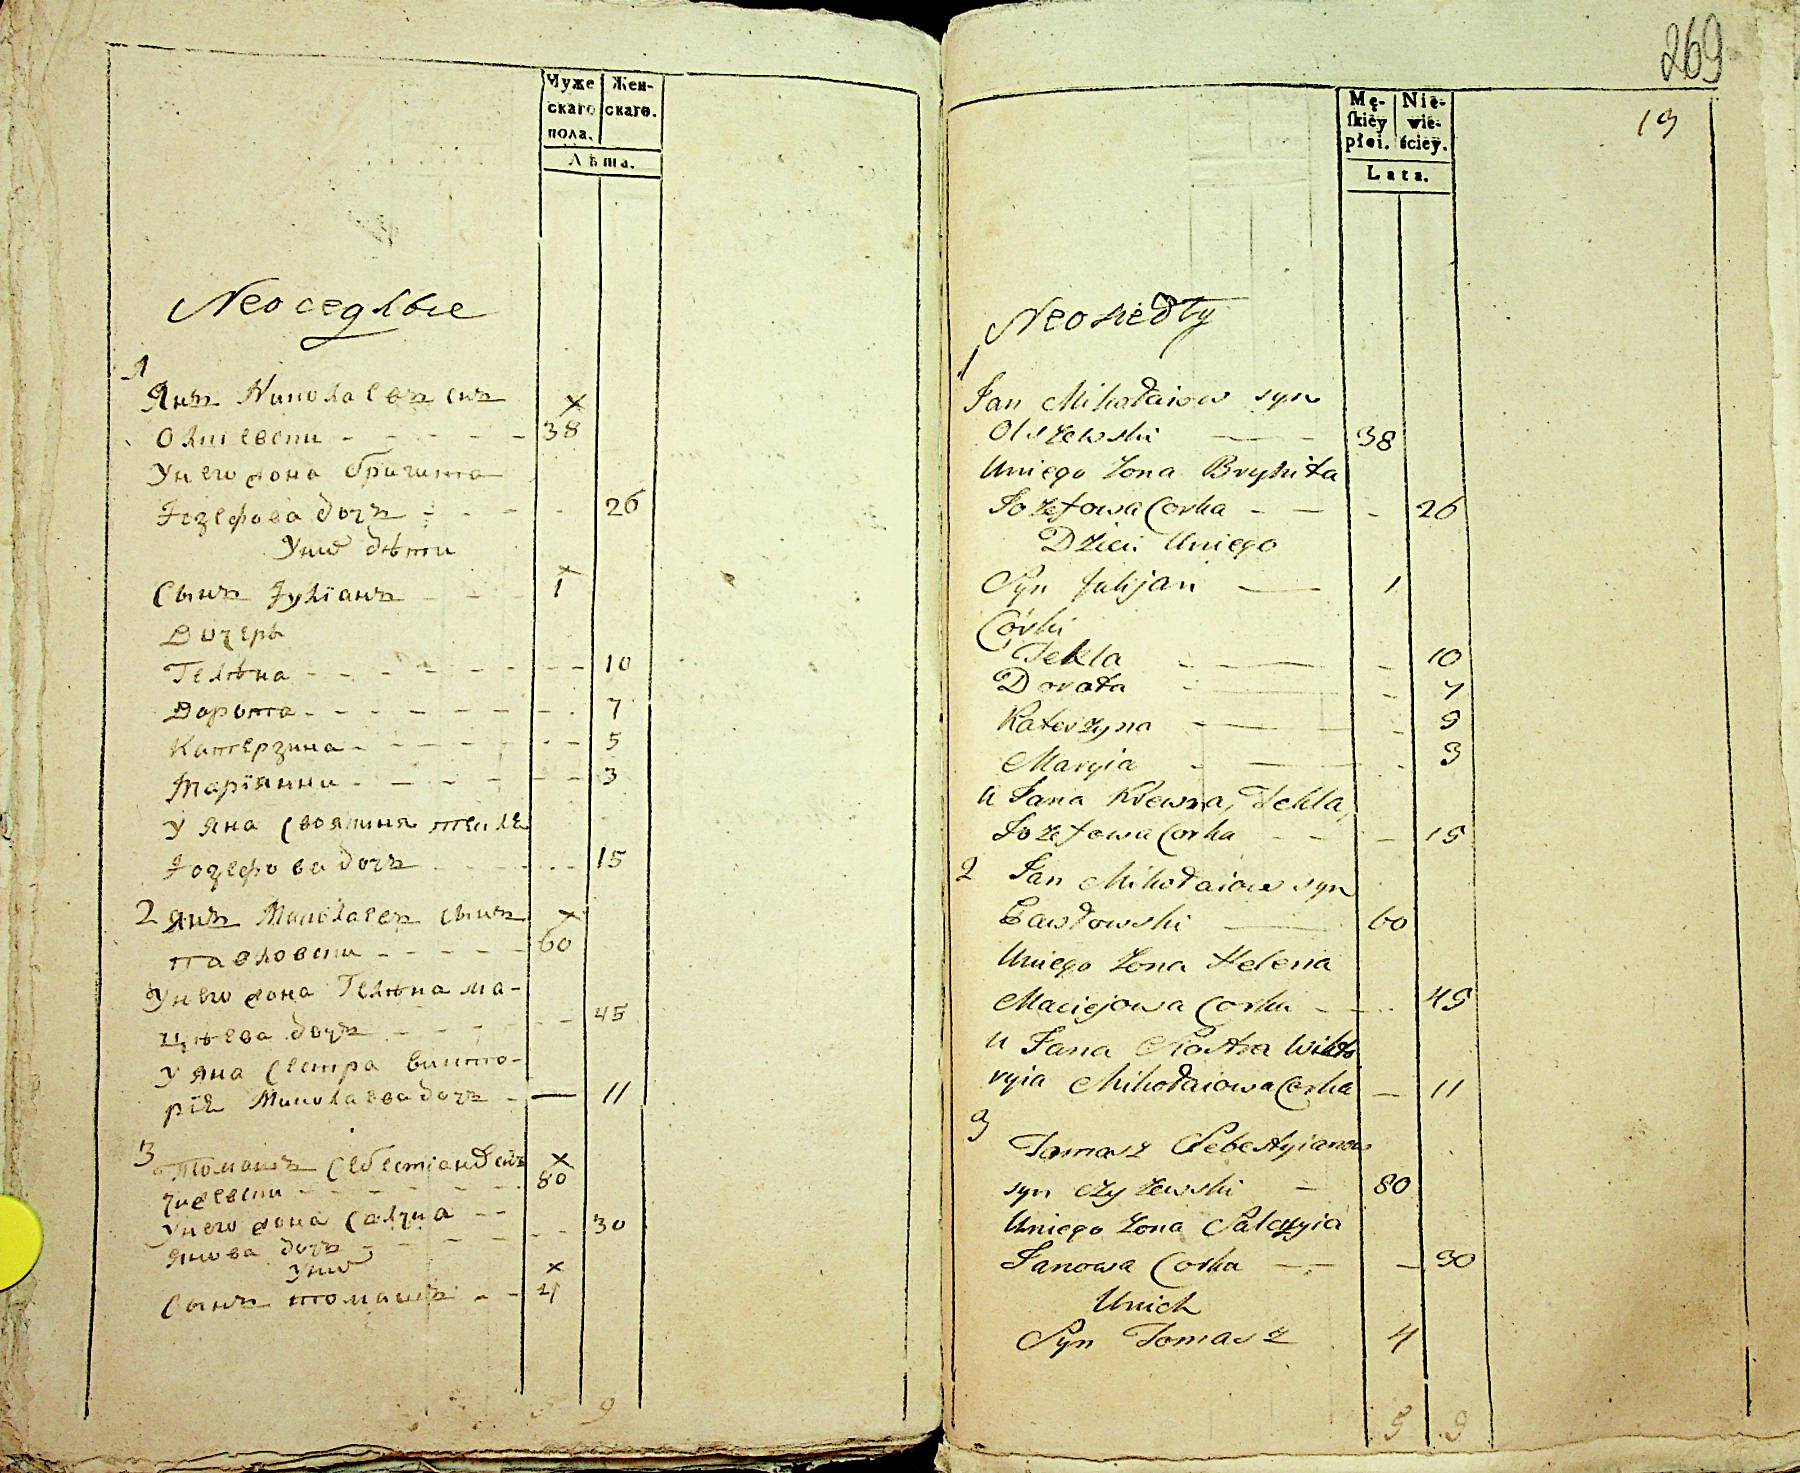 Муже
скаго
пола.
Жен-
скаго.
Лѣта.
Neоседлые
1
Янъ Николаевъ снъ
×
Олшевски - - - - - 38
У него жона Бригита
Іозефова дочъ - - - - 26
У ние дѣти
×
Сынъ Іулианъ - - - 1
Дочерь
Гелѣна - - - - - - - 10
Дорота - - - - - - - 7
Катерзина - - - - - - 5
Марїянна - - - - - - 3
У Яна своячиня текле
Іозефова дочъ - - - - - 15
2 Янъ Миколаевъ сынъ
×
Павловски - - - - - 60
У него жона Гелѣна Ма-
цѣева дочъ - - - - - - 45
У Яна сестра Викто-
рїе Миколаева дочъ - — 11
3
Томашъ Себестіановъ снъ
×
Чижевски - - - - - - 80
У него жона Салчиа - -
Янова дочъ - - - - - - 30
У ние
×
Сынъ Томашъ - - 4
9
269
13
Mę-
ſkiéy
płci.
Nie-
wie-
ściéy.
Lata.
Neosiedły
1
Jan Mikołaiow syn
Olszewski — - 38
Uniego Zona Brygita
Jozefowa Corka - — - 26
Dzieci Uniego
Syn Julijan — 1
Córki
Tekla - — - 10
Dorota - — - 7
Katerzyna - — - 5
Maryia - — - 3
U Jana Krewna, Tekla,
Jozefowa Corka - - - 15
2 Jan Mikołaiow syn
Pawłowski — 60
Uniego Zona Helena
Maciejowa Corka - - - 45
U Jana Siostra Wikto
ryia Mikołaiowa Corka — 11
3
Tomasz Sebestyianow
syn Czyzewski — 80
Uniego Zona Salczyia
Janowa Corka — - - 30
Unich
Syn Tomasz 4
5 9